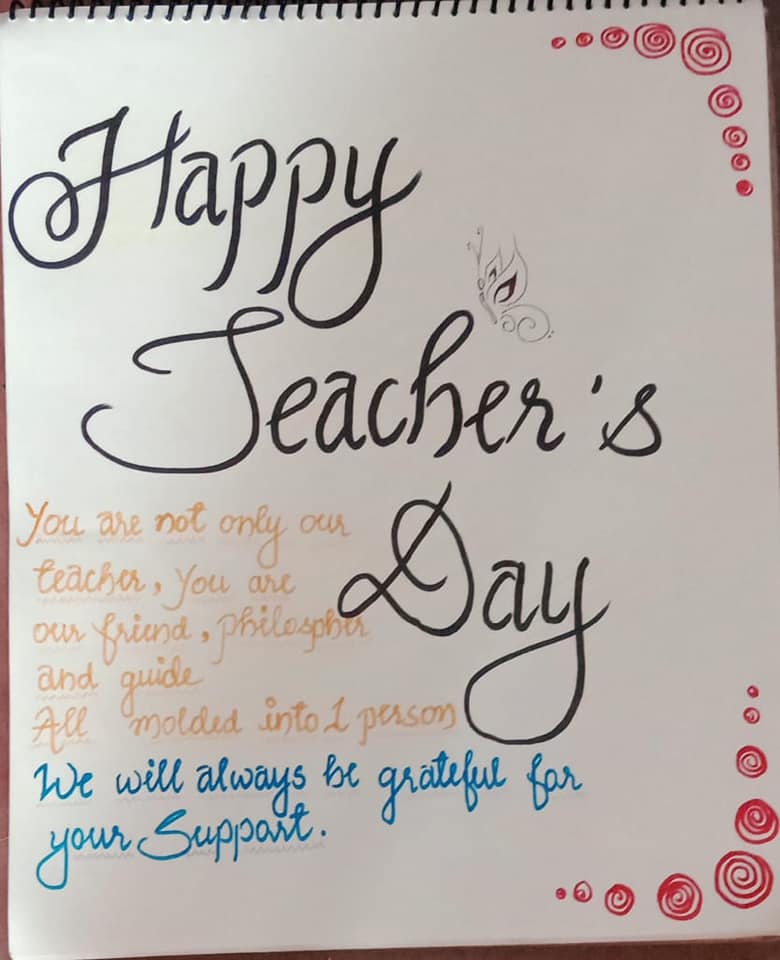 Happy
Teacher's
Day
You are not only our
teacher, you are
our friend, philospher
and guide
All molded into 1 person
We will always be grateful for
your Support.